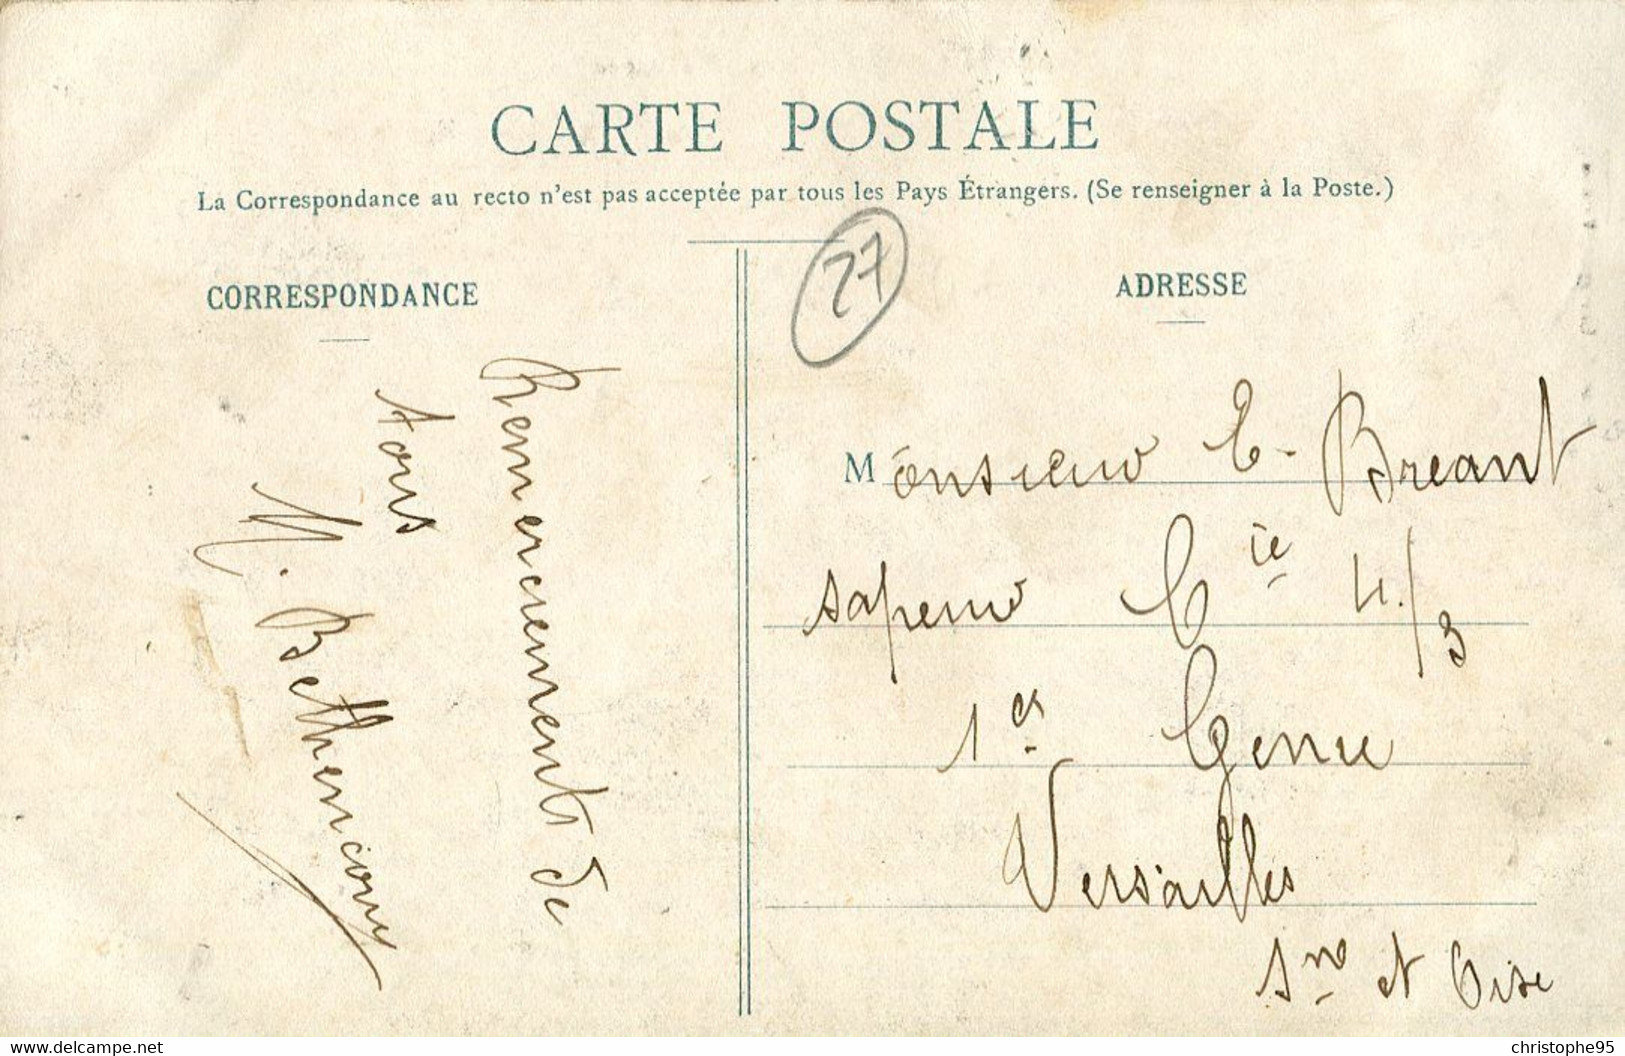 CARTE POSTALE
La Correspondance au recto n'est pas acceptée par tous les Pays Étrangers. (Se renseigner à la Poste.)
CORRESPONDANCE
Remerciements de
tous
M. Bethencourt
27
ADRESSE
Monsieur E. Breant
sapeur Cie 4/3
1er Genie
Versailles
Sne et Oise
www.delcampe.net
christophe95